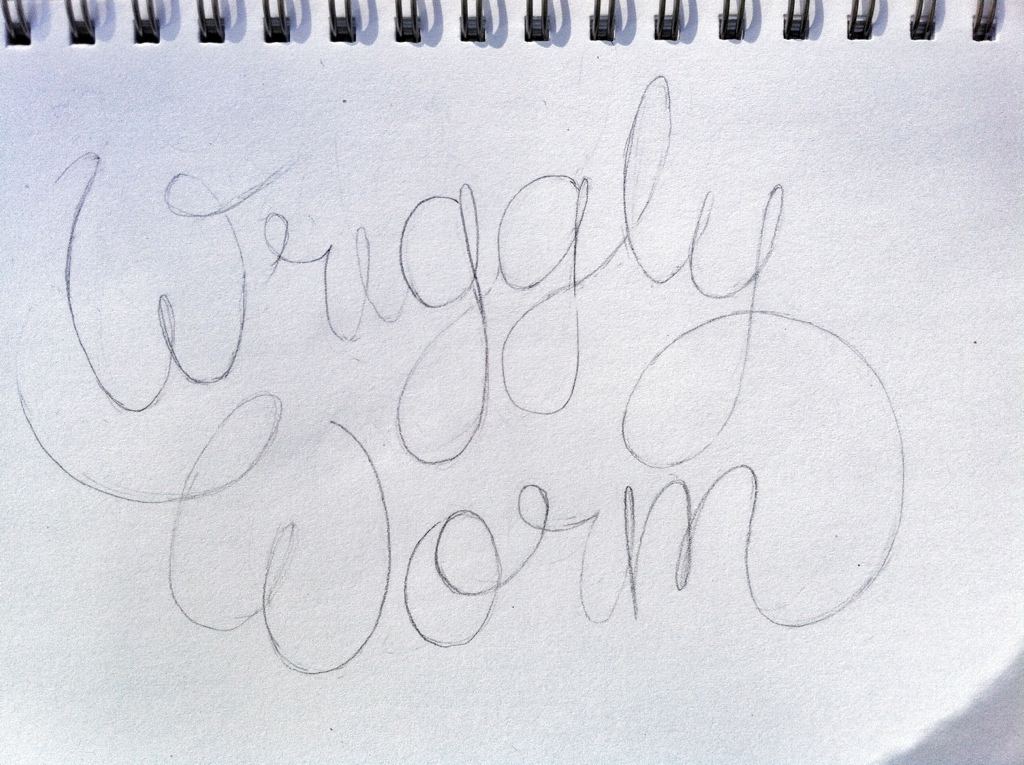 Wriggly
Worm